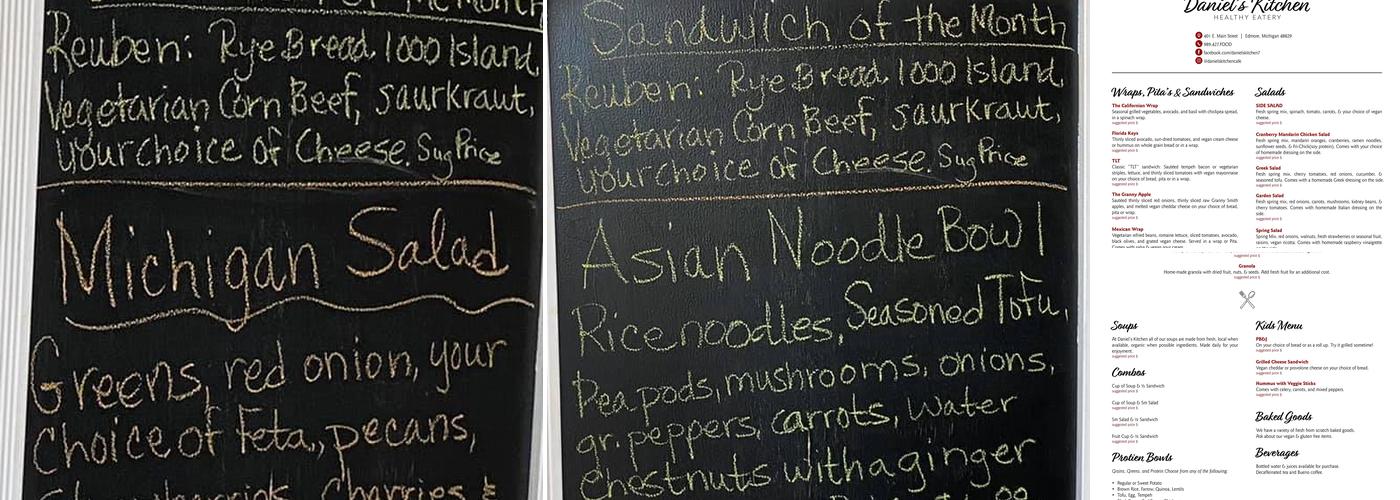 Reuben: Rye Bread, 1000 Island,
Vegetarian Corn Beef, saurkraut,
your choice of Cheese. Sug Price
Michigan Salad
Greens, red onion, your
choice of Feta, pecans,
Sandwich of the Month
Reuben: Rye Bread, 1000 Island,
Corn Beef, saurkraut,
your choice of Cheese. Sug Price
Asian Noodle Bowl
Rice noodles, Seasoned Tofu,
Pea pods, mushrooms, onions,
gr. peppers, carrots, water
chestnuts with a ginger
Daniel's Kitchen
HEALTHY EATERY
401 E. Main Street | Edmore, Michigan 48829
989.427.FOOD
facebook.com/danielskitchen7
@danielskitchencafe
Wraps, Pita's & Sandwiches
The Californian Wrap
Seasonal grilled vegetables, avocado, and basil with chickpea spread,
in a spinach wrap.
suggested price $
Florida Keys
Thinly sliced avocado, sun-dried tomatoes, and vegan cream cheese
or hummus on whole grain bread or in a wrap.
suggested price $
TLT
Classic "TLT" sandwich: Sauteed tempeh bacon or vegetarian
striples, lettuce, and thinly sliced tomatoes with vegan mayonnaise
on your choice of bread, pita or in a wrap.
suggested price $
The Granny Apple
Sautéed thinly sliced red onions, thinly sliced raw Granny Smith
apples, and melted vegan cheddar cheese on your choice of bread,
pita or wrap.
suggested price $
Mexican Wrap
Vegetarian refried beans, romaine lettuce, sliced tomatoes, avocado,
black olives, and grated vegan cheese. Served in a wrap or Pita.
Salads
SIDE SALAD
Fresh spring mix, spinach, tomato, carrots, & your choice of vegan
cheese.
suggested price $
Cranberry Mandarin Chicken Salad
Fresh spring mix, mandarin oranges, cranberries, ramen noodles,
sunflower seeds, & Fri-Chick(soy protein). Comes with your choice
of homemade dressing on the side.
suggested price $
Greek Salad
Fresh spring mix, cherry tomatoes, red onions, cucumber, &
seasoned tofu. Comes with a homemade Greek dressing on the side.
suggested price $
Garden Salad
Fresh spring mix, red onions, carrots, mushrooms, kidney beans, &
cherry tomatoes. Comes with homemade Italian dressing on the
side.
suggested price $
Spring Salad
Spring Mix, red onions, walnuts, fresh strawberries or seasonal fruit,
raisins, vegan ricotta. Comes with homemade raspberry vinaigrette
suggested price $
Granola
Home-made granola with dried fruit, nuts, & seeds. Add fresh fruit for an additional cost.
suggested price $
Soups
At Daniel's Kitchen all of our soups are made from fresh, local when
available, organic when possible ingredients. Made daily for your
enjoyment.
suggested price $
Combos
Cup of Soup & ½ Sandwich
suggested price $
Cup of Soup & Sm Salad
suggested price $
Sm Salad & ½ Sandwich
suggested price $
Fruit Cup & ½ Sandwich
suggested price $
Protien Bowls
Grains, Greens, and Protein Choose from any of the following:
• Regular or Sweet Potato
• Brown Rice, Farrow, Quinoa, Lentils
• Tofu, Egg, Tempeh
Kids Menu
PB&J
On your choice of bread or as a roll up. Try it grilled sometime!
suggested price $
Grilled Cheese Sandwich
Vegan cheddar or provolone cheese on your choice of bread.
suggested price $
Hummus with Veggie Sticks
Comes with celery, carrots, and mixed peppers.
suggested price $
Baked Goods
We have a variety of fresh from scratch baked goods.
Ask about our vegan & gluten free items.
Beverages
Bottled water & juices available for purchase.
Decaffeinated tea and Bueno coffee.